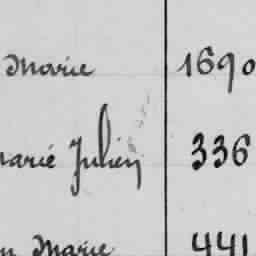 Marie 1690
marié Julien 336
Marie 441